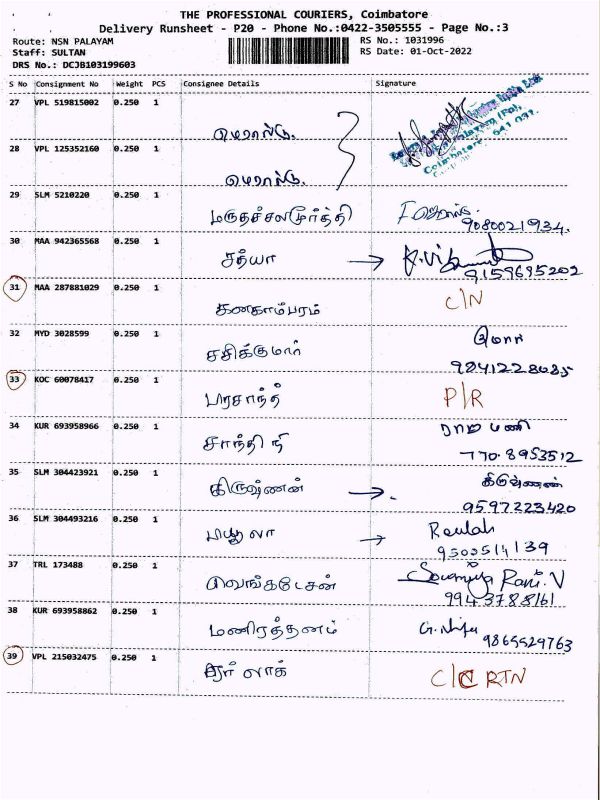 THE PROFESSIONAL COURIERS, Coimbatore
Delivery Runsheet - P20 - Phone No.:0422-3505555 - Page No.:3
Route: NSN PALAYAM
RS No.: 1031996
Staff: SULTAN
RS Date: 01-Oct-2022
DRS No.: DCJB103199603
S No Consignment No Weight PCS Consignee Details Signature
27 VPL 519815002 0.250 1
28 VPL 125352160 0.250 1
Coimbatore. 641 031.
29 SLM 5210220 0.250 1 மருதாச்சலமூர்த்தி
9080021934.
30 MAA 942365568 0.250 1 சத்யா →
9159695202
31 MAA 287881029 0.250 1 கனகாம்பரம் C/N
32 MYD 3028599 0.250 1 சசிக்குமார்
33 KOC 60078417 0.250 1 பிரசாந்த் P/R
34 KUR 693958966 0.250 1 சாந்தி நி ராம மணி
770.8953512
35 SLM 304423921 0.250 1 கிருஷ்ணன் → கிருஷ்ணன்
9597223420
36 SLM 304493216 0.250 1 →
37 TRL 173488 0.250 1 வெங்கடேசன் Sowmiya Rani.V
9943788161
38 KUR 693958862 0.250 1 மணிரத்தனம்
9865529763
39 VPL 215032475 0.250 1 C/C RTN